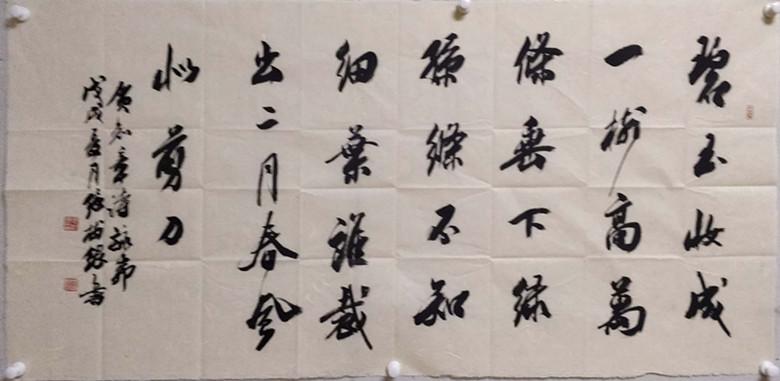 碧玉妝成
一樹高萬
條垂下綠
絲縧不知
細葉誰裁
出二月春風
似剪刀
賀知章詩詠柳
戊戌夏月